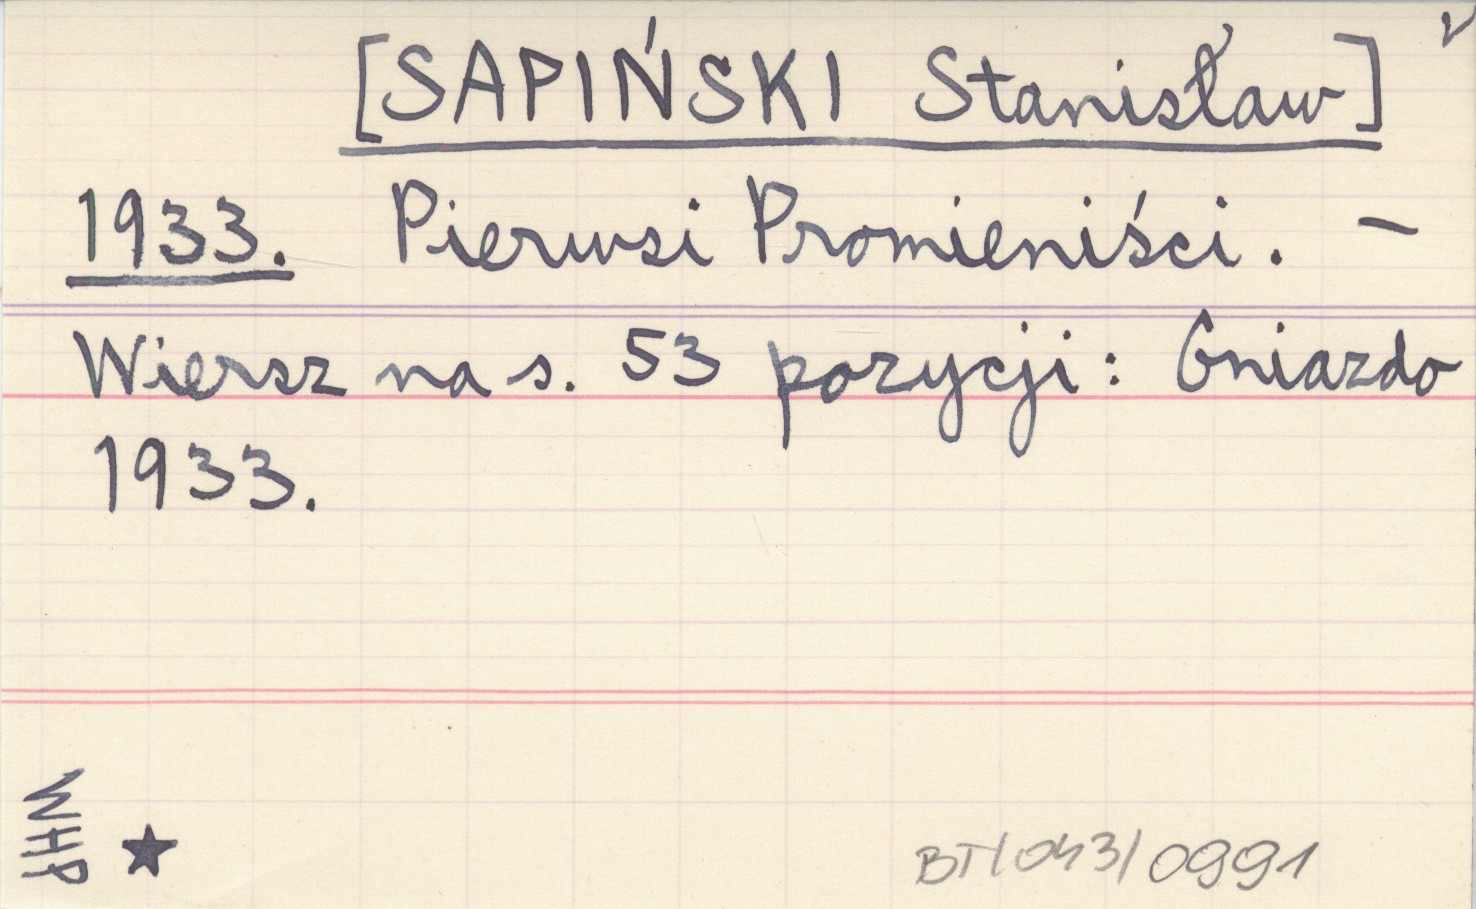 [SAPIŃSKI Stanisław]
1933. Pierwsi Promieniści. —
Wiersz na s. 53 pozycji: Gniazdo
1933.
WHP ★
BT/043/0991